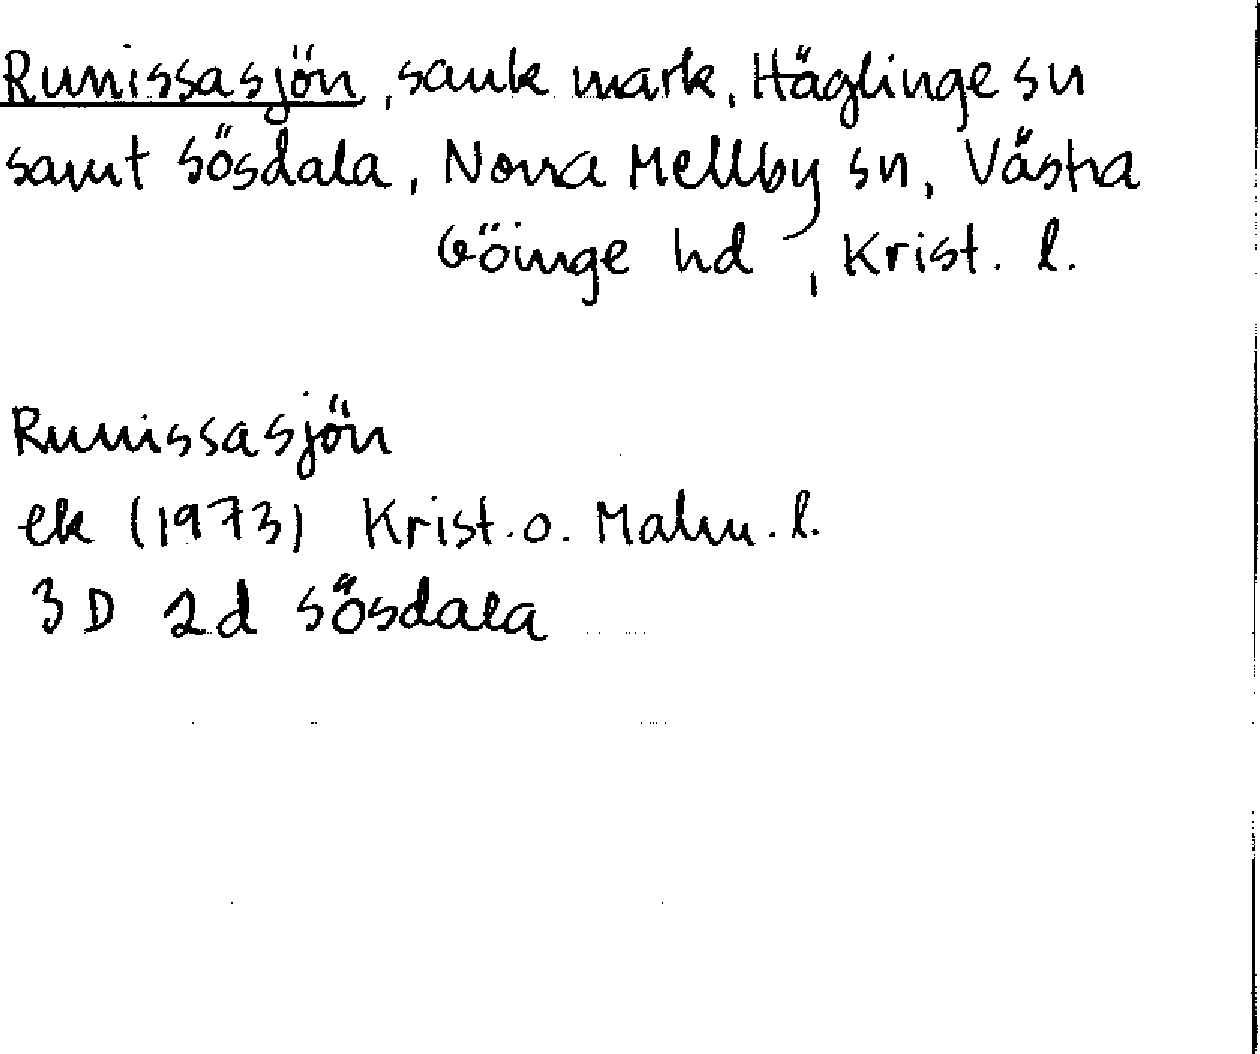 Runissasjön, sank mark, Häglinge sn
samt Sösdala, Norra Mellby sn, Västra
Göinge hd, Krist. l.
Runissasjön
ek (1973) Krist. o. Malm. l.
3D 2d Sösdala